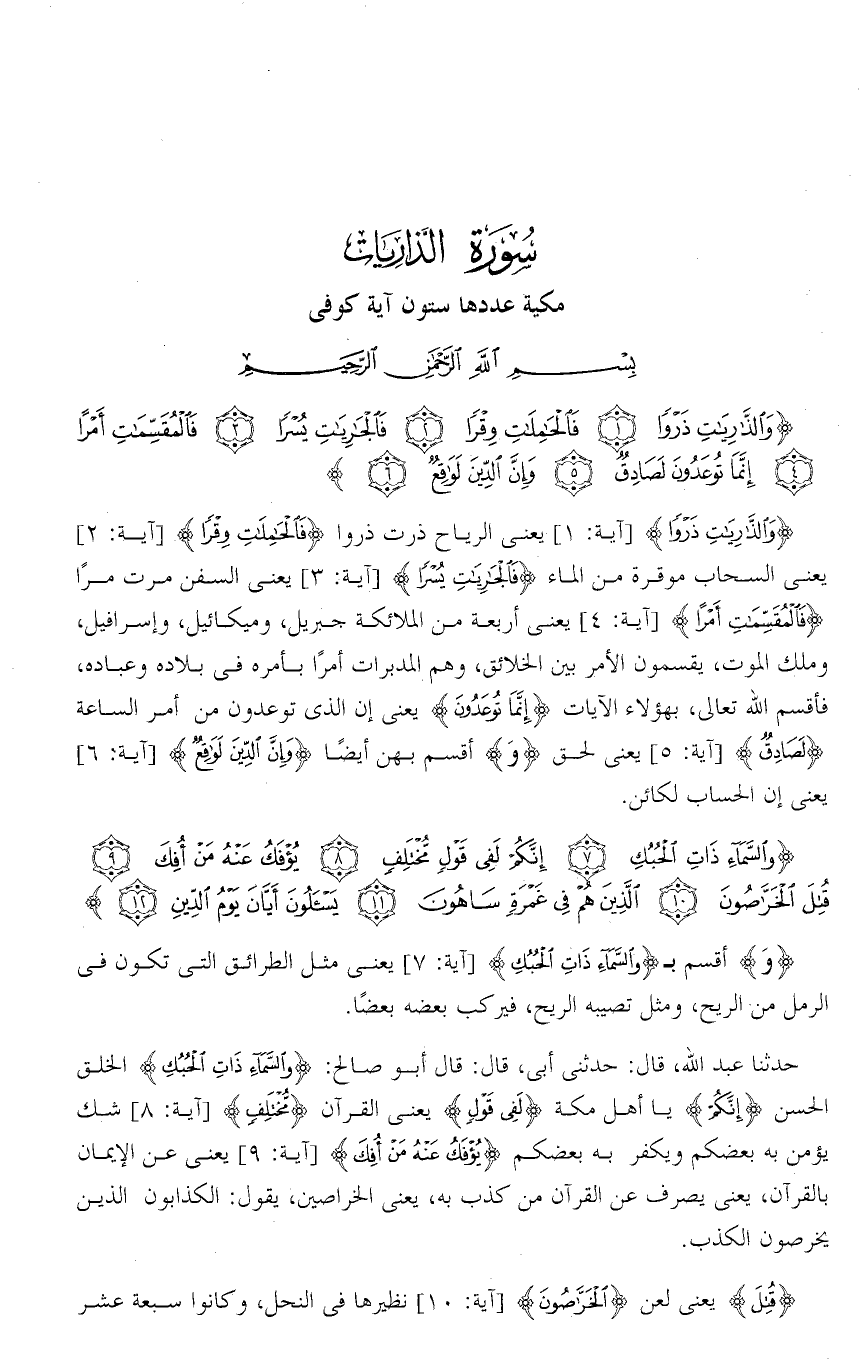 سُورَة الذَّارِيَات
مكية عددها ستون آية كوفى
بِسْمِ ٱللَّهِ ٱلرَّحْمَٰنِ ٱلرَّحِيمِ
﴿وَٱلذَّٰرِيَٰتِ ذَرْوًا ۝١ فَٱلْحَٰمِلَٰتِ وِقْرًا ۝٢ فَٱلْجَٰرِيَٰتِ يُسْرًا ۝٣ فَٱلْمُقَسِّمَٰتِ أَمْرًا
۝٤ إِنَّمَا تُوعَدُونَ لَصَادِقٌ ۝٥ وَإِنَّ ٱلدِّينَ لَوَٰقِعٌ ۝٦ ﴾
﴿وَٱلذَّٰرِيَٰتِ ذَرْوًا﴾ [آية: ١] يعنى الرياح ذرت ذروا ﴿فَٱلْحَٰمِلَٰتِ وِقْرًا﴾ [آية: ٢]
يعنى السحاب موقرة من الماء ﴿فَٱلْجَٰرِيَٰتِ يُسْرًا﴾ [آية: ٣] يعنى السفن مرت مرًا
﴿فَٱلْمُقَسِّمَٰتِ أَمْرًا﴾ [آية: ٤] يعنى أربعة من الملائكة جبريل، وميكائيل، وإسرافيل،
وملك الموت، يقسمون الأمر بين الخلائق، وهم المدبرات أمرًا بأمره فى بلاده وعباده،
فأقسم الله تعالى، بهؤلاء الآيات ﴿إِنَّمَا تُوعَدُونَ﴾ يعنى إن الذى توعدون من أمر الساعة
﴿لَصَادِقٌ﴾ [آية: ٥] يعنى لحق ﴿وَ﴾ أقسم بهن أيضًا ﴿وَإِنَّ ٱلدِّينَ لَوَٰقِعٌ﴾ [آية: ٦]
يعنى إن الحساب لكائن.
﴿وَٱلسَّمَآءِ ذَاتِ ٱلْحُبُكِ ۝٧ إِنَّكُمْ لَفِى قَوْلٍ مُّخْتَلِفٍ ۝٨ يُؤْفَكُ عَنْهُ مَنْ أُفِكَ ۝٩
قُتِلَ ٱلْخَرَّٰصُونَ ۝١٠ ٱلَّذِينَ هُمْ فِى غَمْرَةٍ سَاهُونَ ۝١١ يَسْـَٔلُونَ أَيَّانَ يَوْمُ ٱلدِّينِ ۝١٢ ﴾
﴿وَ﴾ أقسم بـ﴿وَٱلسَّمَآءِ ذَاتِ ٱلْحُبُكِ﴾ [آية: ٧] يعنى مثل الطرائق التى تكون فى
الرمل من الريح، ومثل تصيبه الريح، فيركب بعضه بعضًا.
حدثنا عبد الله، قال: حدثنى أبى، قال: قال أبو صالح: ﴿وَٱلسَّمَآءِ ذَاتِ ٱلْحُبُكِ﴾ الخلق
الحسن ﴿إِنَّكُمْ﴾ يا أهل مكة ﴿لَفِى قَوْلٍ﴾ يعنى القرآن ﴿مُّخْتَلِفٍ﴾ [آية: ٨] شك
يؤمن به بعضكم ويكفر به بعضكم ﴿يُؤْفَكُ عَنْهُ مَنْ أُفِكَ﴾ [آية: ٩] يعنى عن الإيمان
بالقرآن، يعنى يصرف عن القرآن من كذب به، يعنى الخراصين، يقول: الكذابون الذين
يخرصون الكذب.
﴿قُتِلَ﴾ يعنى لعن ﴿ٱلْخَرَّٰصُونَ﴾ [آية: ١٠] نظيرها فى النحل، وكانوا سبعة عشر